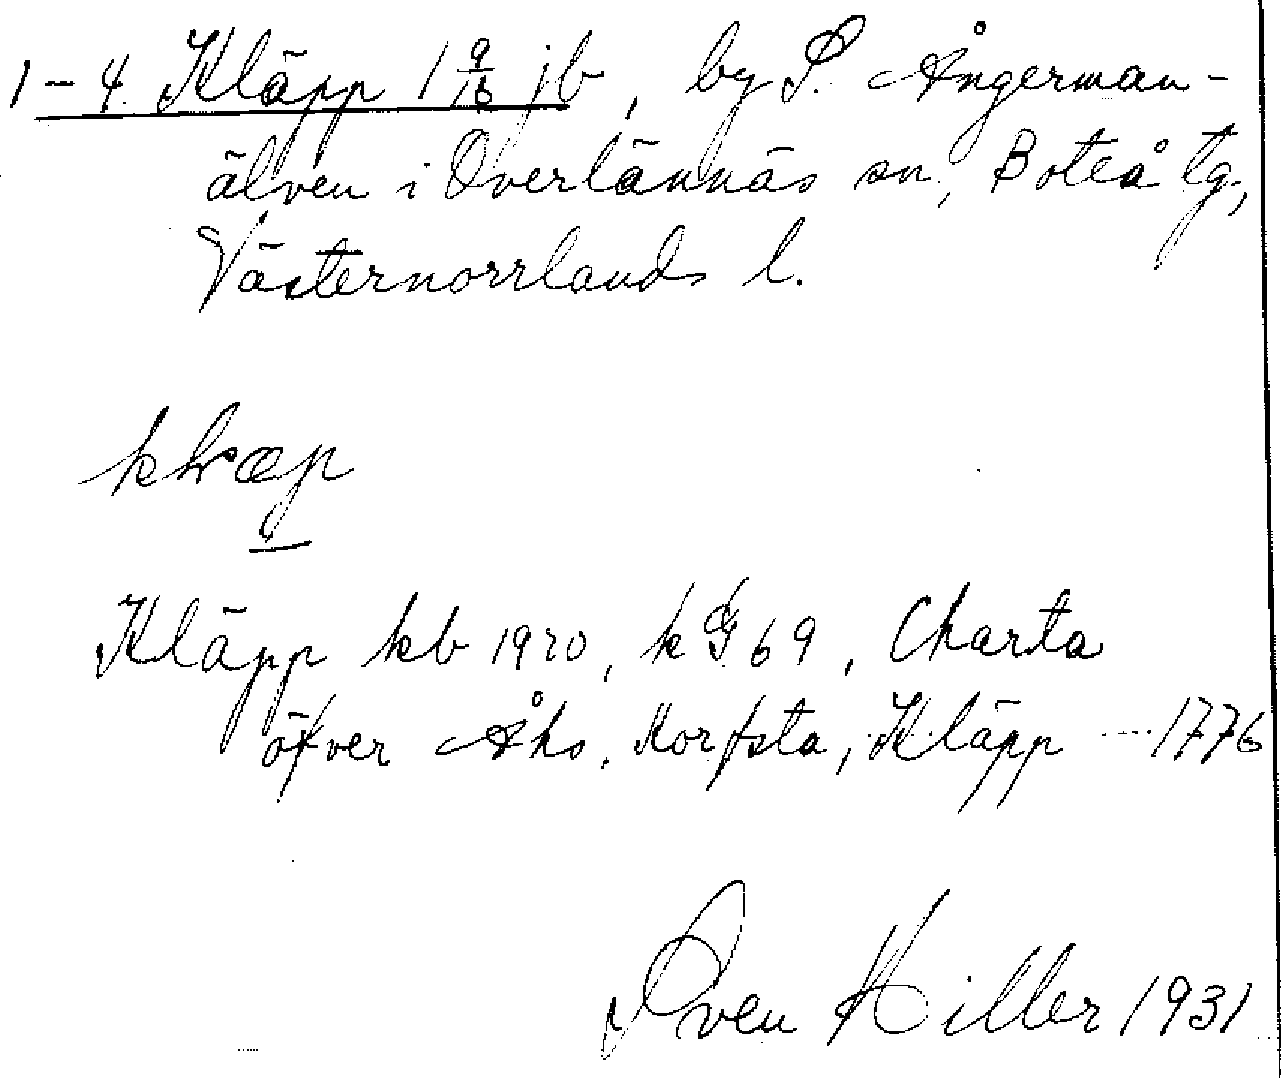 1–4 Kläpp 1 9/16 jb, by S. Ångerman-
älven i Överlännäs sn, Boteå tg,
Västernorrlands l.
Kläpp kb 1920, k G 69, Charta
öfver Åhs, Korfsta, Kläpp ---- 1776
Sven Hiller 1931